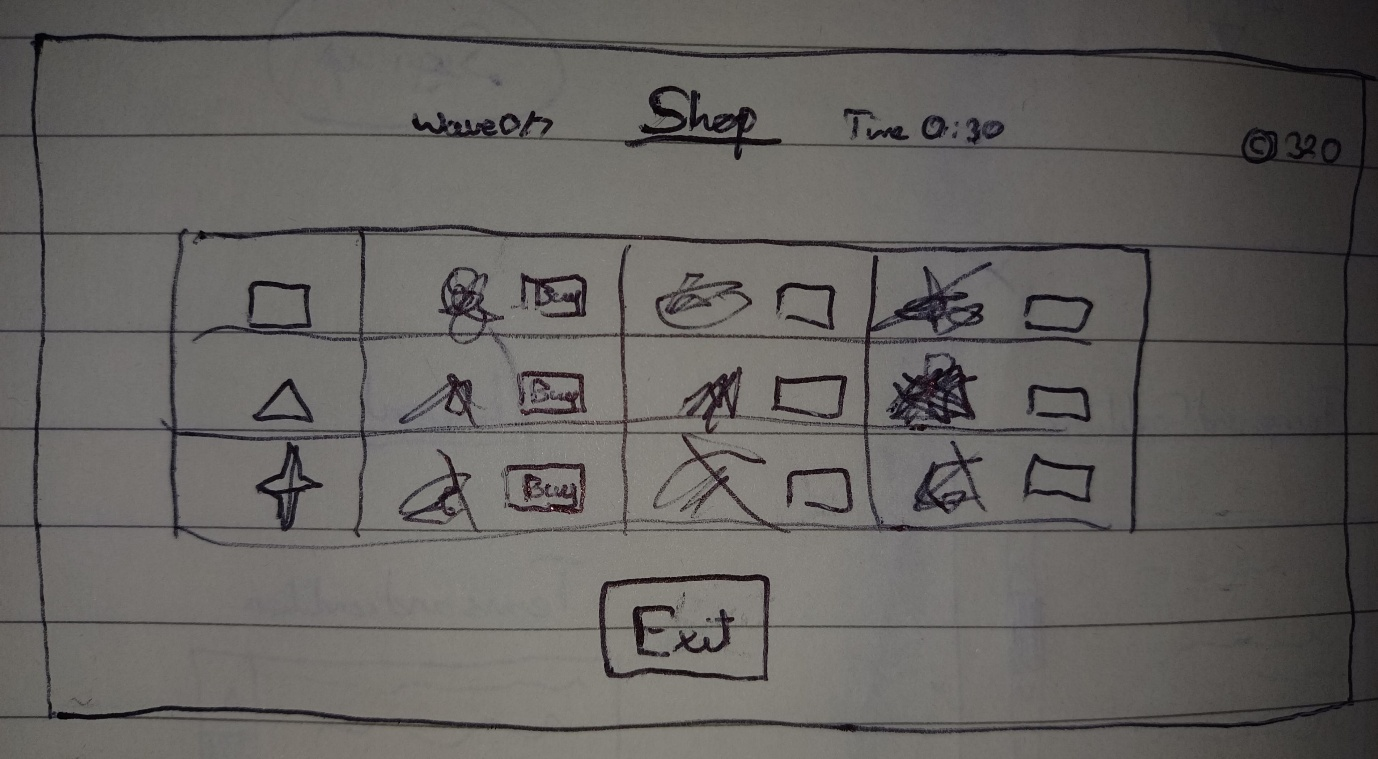 Shop
Time 0:30
© 320
Buy
Buy
Buy
Exit